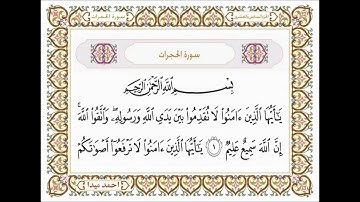 سورة الحجرات
سورة الحجرات
بِسْمِ اللَّهِ الرَّحْمَٰنِ الرَّحِيمِ
يَـٰٓأَيُّهَا ٱلَّذِينَ ءَامَنُوا۟ لَا تُقَدِّمُوا۟ بَيْنَ يَدَىِ ٱللَّهِ وَرَسُولِهِۦ ۖ وَٱتَّقُوا۟ ٱللَّهَ ۚ
إِنَّ ٱللَّهَ سَمِيعٌ عَلِيمٌ ١ يَـٰٓأَيُّهَا ٱلَّذِينَ ءَامَنُوا۟ لَا تَرْفَعُوٓا۟ أَصْوَٰتَكُمْ
احمد ميدا